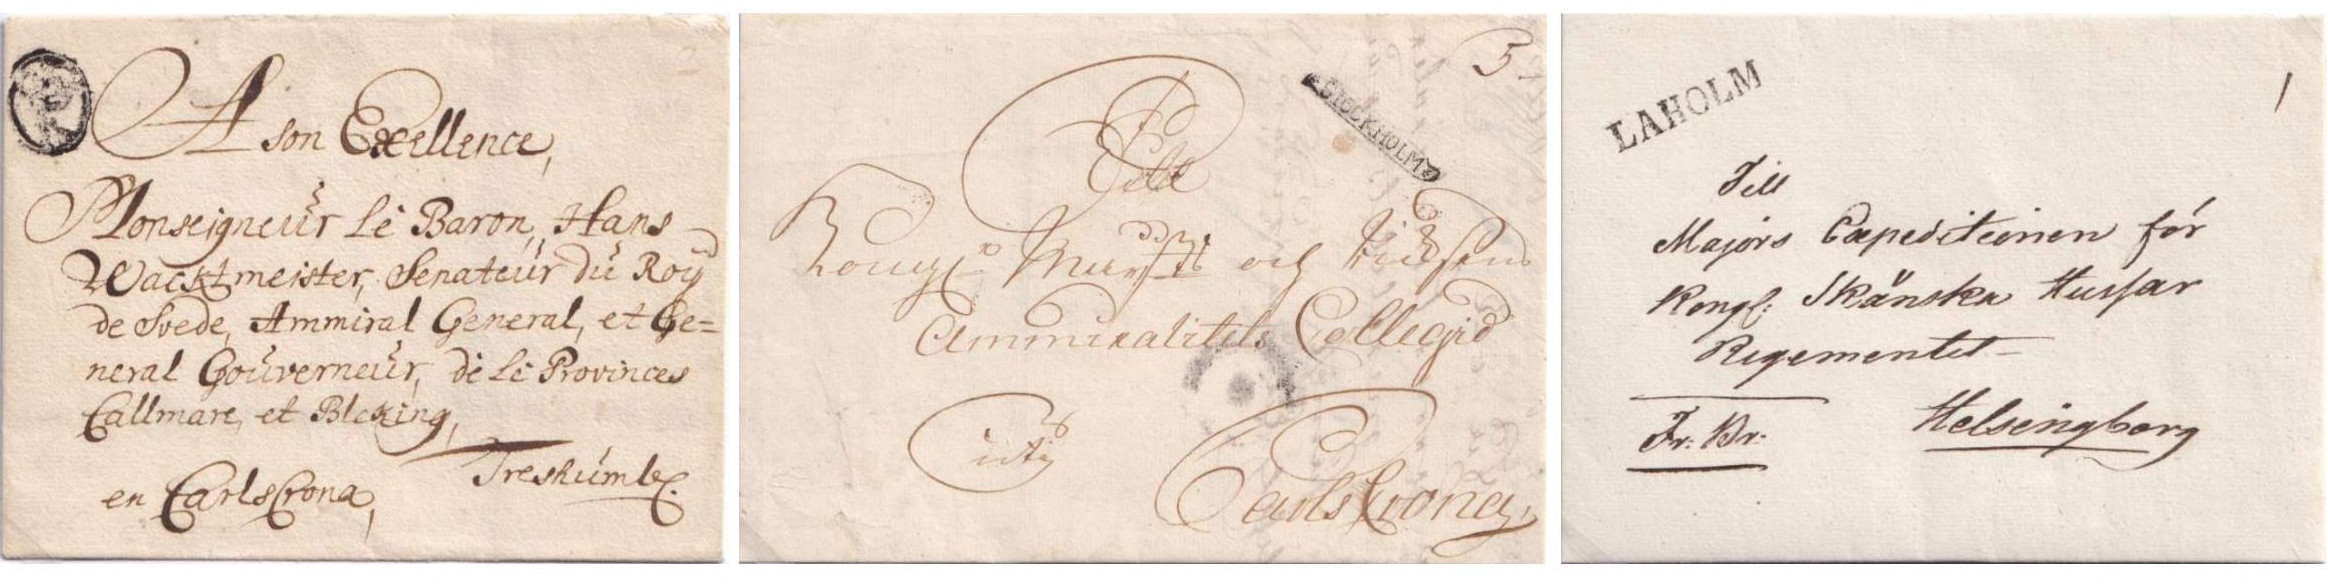 A son Exellence,
Monseigneur Le Baron, Hans
Wacktmeister, Senateur du Roy
de Svede, Ammiral General, et Ge=
neral Gouverneur, de Le Provinces
Callmare, et Bleking,
Treshumble.
en CarlsCrona,
5
STOCKHOLM
Till
och
Ammiralitets Collegio
uti
CarlsCrona,
1
LAHOLM
Till
Majors Expeditionen för
Kongl: Skånska Hussar
Regementet
Fr: Br:
Helsingborg